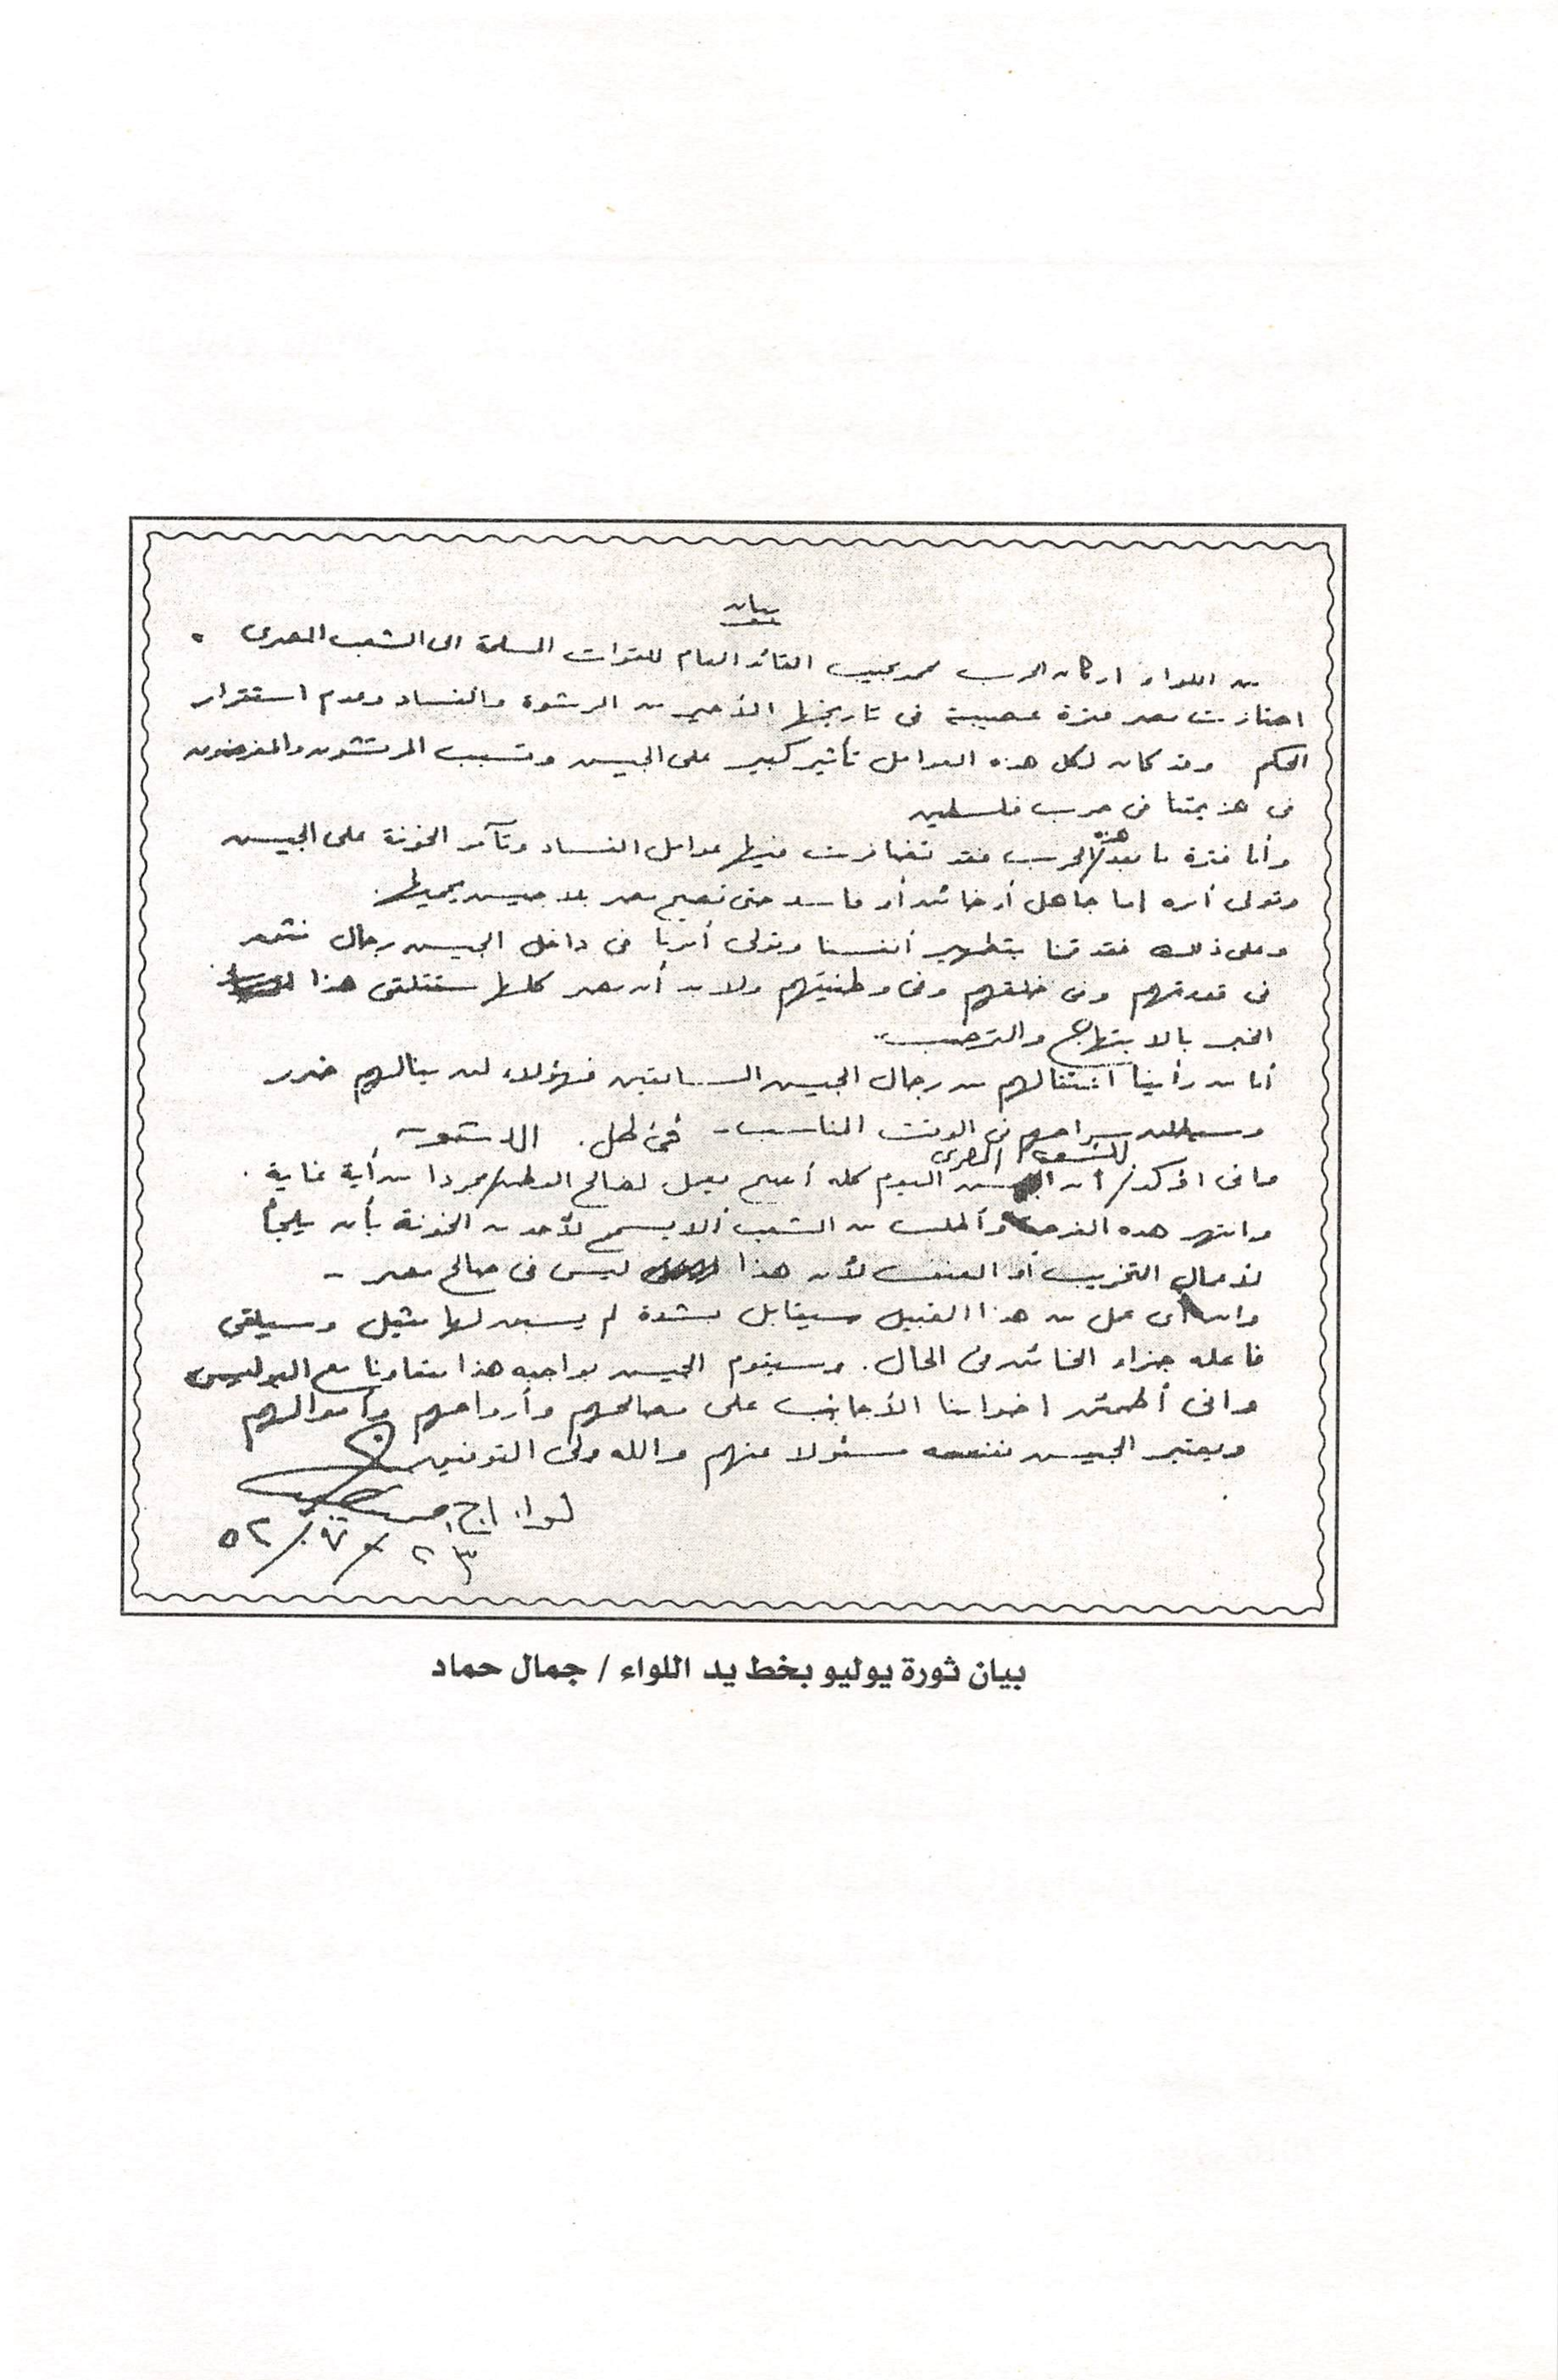 بيان
من اللواء اركان الحرب محمد نجيب القائد العام للقوات المسلحة الى الشعب المصرى .
اجتازت مصر فترة عصيبة فى تاريخها الأخير من الرشوة والفساد وعدم استقرار
الحكم وقد كان لكل هذه العوامل تأثير كبير على الجيش وتسبب المرتشون والمغرضون
فى هزيمتنا فى حرب فلسطين
وأما فترة ما بعد هذه الحرب فقد تضافرت فيها عوامل الفساد وتآمر الخونة على الجيش
وتولى أمره إما جاهل أو خائن أو فاسد حتى تصبح مصر بلا جيش يحميها.
وعلى ذلك فقد قمنا بتطهير أنفسنا وتولى أمرنا فى داخل الجيش رجال نثق
فى قدرتهم وفى خلقهم وفى وطنيتهم ولابد أن مصر كلها ستتلقى هذا
الخبر بالابتهاج والترحيب.
أما من رأينا اعتقالهم من رجال الجيش السابقين فهؤلاء لن ينالهم ضرر
وسيطلق سراحهم فى الوقت المناسب - فى ظل الدستور
وانى اؤكد للشعب المصرى أن الجيش اليوم كله أصبح يعمل لصالح الوطن مجردا من أية غاية .
وانتهز هذه الفرصة وأطلب من الشعب ألا يسمح لأحد من الخونة بأن يلجأ
لأعمال التخريب أو العنف لأن هذا ليس فى صالح مصر -
وان أى عمل من هذا القبيل سيقابل بشدة لم يسبق لها مثيل وسيلقى
فاعله جزاء الخائن فى الحال. وسيقوم الجيش بواجبه هذا متعاونا مع البوليس
وانى أطمئن اخواننا الأجانب على مصالحهم وأرواحهم وأموالهم
ويعتبر الجيش نفسه مسئولا عنهم والله ولى التوفيق
لواء أ.ح.
٢٣/٧/٥٢
بيان ثورة يوليو بخط يد اللواء / جمال حماد